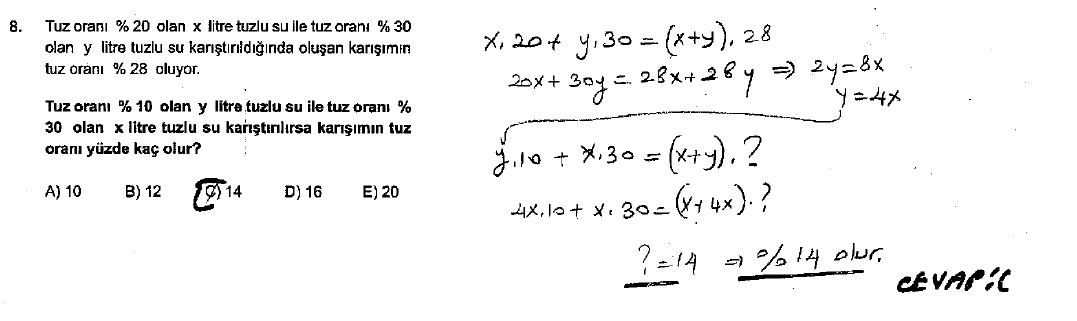 8. Tuz oranı % 20 olan x litre tuzlu su ile tuz oranı % 30
olan y litre tuzlu su karıştırıldığında oluşan karışımın
tuz oranı % 28 oluyor.
Tuz oranı % 10 olan y litre tuzlu su ile tuz oranı %
30 olan x litre tuzlu su karıştırılırsa karışımın tuz
oranı yüzde kaç olur?
A) 10 B) 12 C) 14 D) 16 E) 20
x.20 + y.30 = (x+y).28
20x + 30y = 28x + 28y ⇒ 2y = 8x
y = 4x
y.10 + x.30 = (x+y).?
4x.10 + x.30 = (x+4x).?
? = 14 ⇒ % 14 olur.
CEVAP: C